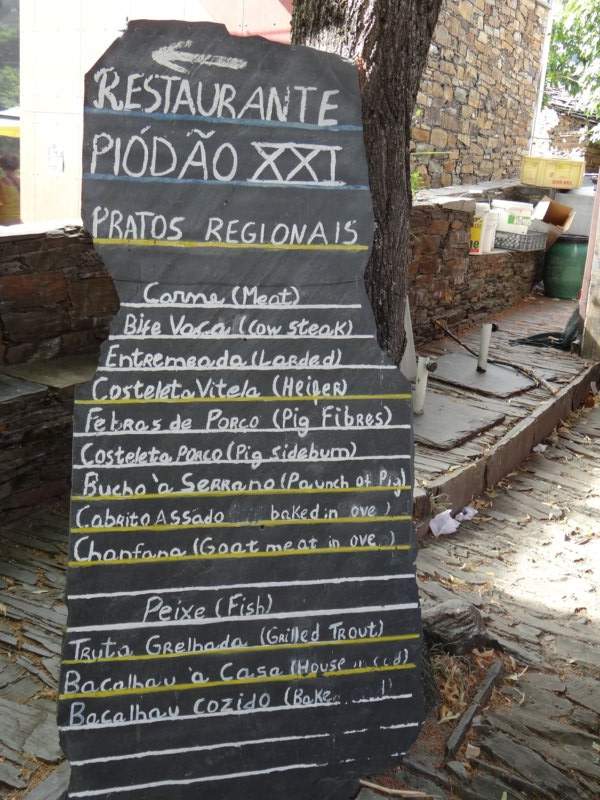 RESTAURANTE
PIÓDÃO XXI
PRATOS REGIONAIS
Carne (Meat)
Bife Vaca (Cow steak)
Entremeada (Larded)
Costeleta Vitela (Heifer)
Febras de Porco (Pig Fibres)
Costeleta Porco (Pig sideburn)
Bucho à Serrano (Paunch of Pig)
Cabrito Assado baked in
Chanfana (Goat meat in
Peixe (Fish)
Truta Grelhada (Grilled Trout)
Bacalhau à Casa (House
Bacalhau cozido